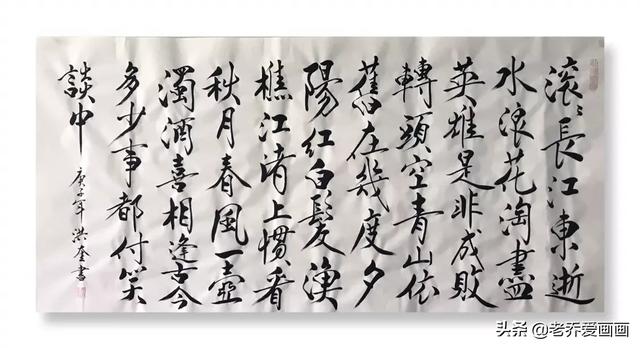 滚々長江東逝
水浪花淘盡
英雄是非成敗
轉頭空青山依
舊在幾度夕
陽紅白髮漁
樵江渚上慣看
秋月春風一壺
濁酒喜相逢古今
多少事都付笑
談中
庚子年洪奎書
头条 @老乔爱画画